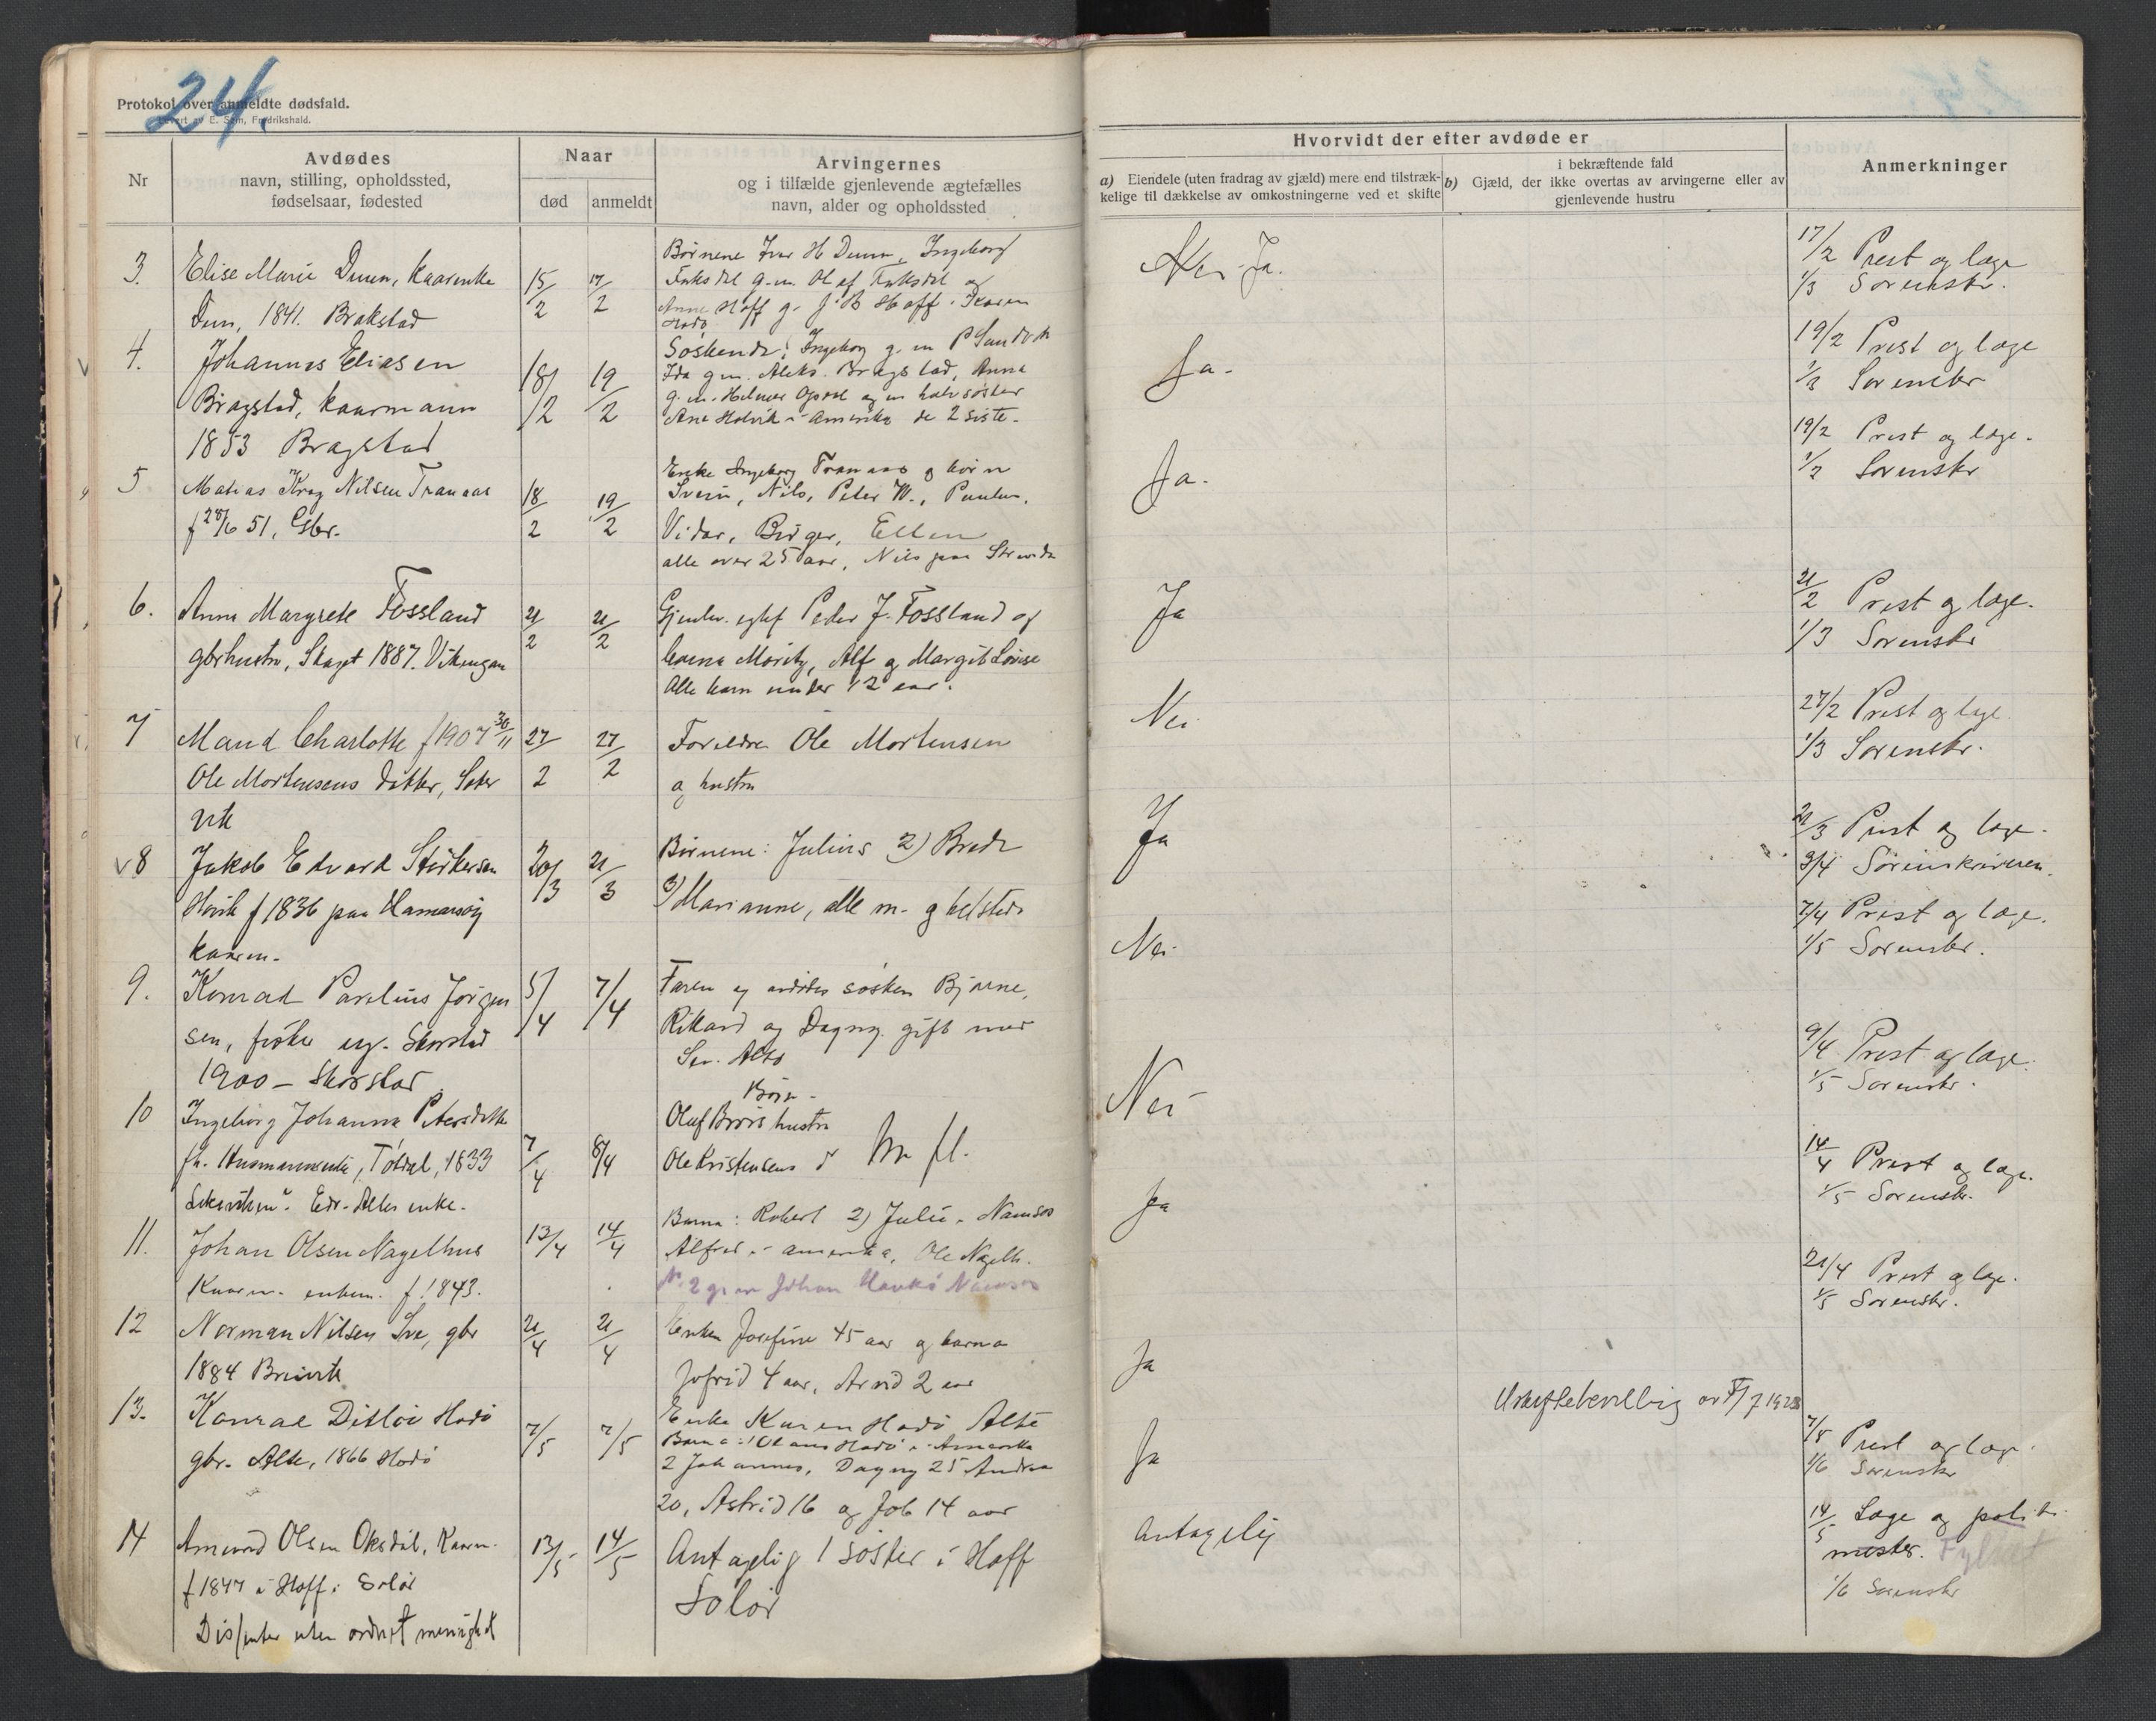 24.
Protokol over anmeldte dødsfald.
Levert av E. Sem, Fredrikshald.
Nr
Avdødes
navn, stilling, opholdssted,
fødselsaar, fødested
Naar
død
anmeldt
Arvingernes
og i tilfælde gjenlevende ægtefælles
navn, alder og opholdssted
3.
Elise Marie Duun, kaarenke
Duun, 1841. Brakstad
15/2
17/2
Børnene Ivar H Duun, Ingeborg
Faksdal g.m. Olaf Faksdal og
Anne Hoff g. J. B Hoff
4.
Johannes Eliasen
Bragstad, kaarmann
1853 Bragstad
18/2
19/2
Søskende: Ingeborg g. m P Sandvik
Ida g m. Aleks. Bragstad, Anna
g. m. Helmer Opdal og en halvsøster
Ane Holvik i Amerika de 2 siste.
5
Matias Krog Nilsen Tranaas
f 28/6 51, Gbr.
18/2
19/2
Enke Ingeborg Tranaas og børn
Svein, Nils, Peter M., Paulus,
Vidar, Birger, Ellen
alle over 25 aar, Nils paa Strinda
6.
Anna Margrete Fossland
gbrhustru, Skaget 1887. Vikengan
21/2
21/2
Gjenlev. egtef Peder J. Fossland og
barna Moritz, Alf og Margit Lovise
Alle barn under 12 aar.
7
Maud Charlotte f 1907 30/11
Ole Mortensens datter, Seter
vik
27/2
27/2
Foreldre Ole Mortensen
og hustru
v 8
Jakob Edvard Størkersen
Hovik f 1836 paa Hamarøy
kaarm.
20/3
21/3
Børnene: Julius 2) Brede
3) Marianne, alle m. g helsteds
9.
Konrad Parelius Jørgen
sen, fisker ug. Skorstad
1900 – Skorstad
5/4
7/4
Faren og avdødes søsken Bjarne,
Rikard og Dagny gift med
Sev. Alte
10
Ingeborg Johanna Petersdatter
fh. Husmannsenke, Tøtdal, 1833
7/4
8/4
Børn.
Oluf Brørs hustru
Ole Kristensens d m fl.
11.
Johan Olsen Nagelhus
Kaarm. enkem. f. 1843.
13/4
14/4
Barna: Robert 2) Julie, Namsos
Alfred i amerika, Ole Nagelh.
Nr. 2 g. m Johan Havkø Namsos
12
Norman Nilsen Sve, gbr
1884 Breivik
21/4
21/4
Enken Josefine 45 aar og barna
Jofrid 4 aar, Arvid 2 aar
13.
Konrad Ditløi Hodø
gbr. Alte, 1866 Hodø
7/5
7/5
Enke Karen Hodø Alte
Barna: 1 Olaus Hodø i Amerika
2 Johannes, Dagny 25 Andrea
20, Astrid 16 og Job 14 aar
14
Amund Olsen Oksdal, Kaarm.
f 1847 i Hoff i Solør
Dissenter uten ordnet menighet
13/5
14/5
Antagelig 1 søster i Hoff
Solør
Hvorvidt der efter avdøde er
a) Eiendele (uten fradrag av gjæld) mere end tilstræk-
kelige til dækkelse av omkostningerne ved et skifte
i bekræftende fald
b) Gjæld, der ikke overtas av arvingerne eller av
gjenlevende hustru
Anmerkninger
Nei Ja.
17/2 Prest og læge
1/3 Sorenskr.
Ja.
19/2 Prest og læge
1/3 Sorenskr
Ja.
19/2 Prest og læge.
1/2 Sorenskr
Ja
21/2 Prest og læge.
1/3 Sorenskr
Nei
27/2 Prest og læge
1/3 Sorenskr.
Ja
21/3 Prest og læge.
3/4 Sorenskriveren.
Nei
7/4 Prest og læge.
1/5 Sorenskr.
Nei
9/4 Prest og læge.
1/5 Sorenskr.
Ja
14/4 Prest og læge.
1/5 Sorenskr.
Ja
21/4 Prest og læge.
1/5 Sorenskr.
Ja
Uskiftebevilling av /7 1928
7/5 Prest og læge.
1/6 Sorenskr
Antagelig
14/5 Læge og politi
mester. Fylket
1/6 Sorenskr